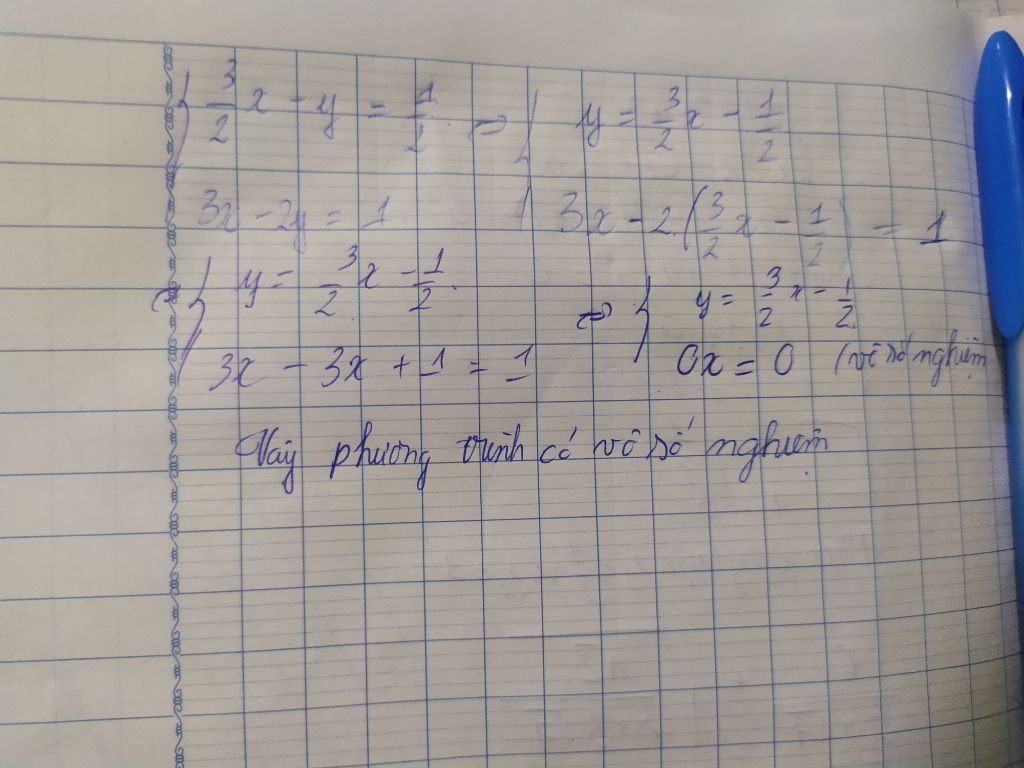 { 3/2 x - y = 1/2 ⇔ { y = 3/2 x - 1/2
3x - 2y = 1 3x - 2(3/2 x - 1/2) = 1
⇔ { y = 3/2 x - 1/2 ⇔ { y = 3/2 x - 1/2
3x - 3x + 1 = 1 0x = 0 (vô số nghiệm
Vậy phương trình có vô số nghiệm